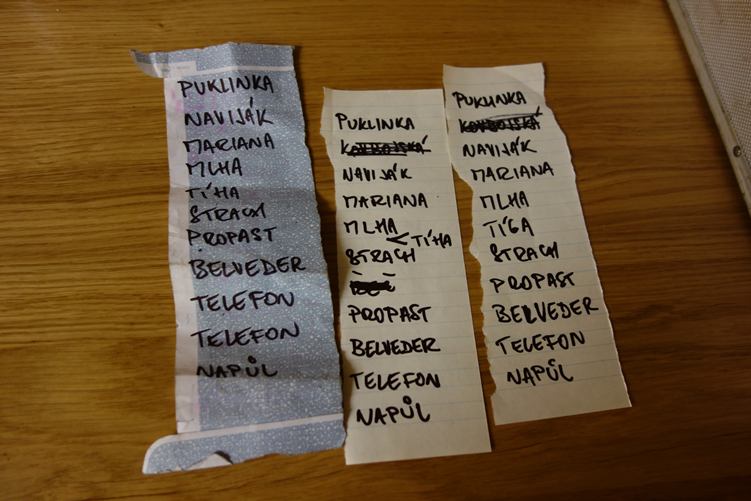 PUKLINKA
NAVIJÁK
MARIANA
MLHA
TÍHA
STRACH
PROPAST
BELVEDER
TELEFON
TELEFON
NAPŮL
PUKLINKA
KOVBOJSKÁ
NAVIJÁK
MARIANA
MLHA
< TÍHA
STRACH
PROPAST
BELVEDER
TELEFON
NAPŮL
PUKLINKA
KOVBOJSKÁ
NAVIJÁK
MARIANA
MLHA
TÍGA
STRACH
PROPAST
BELVEDER
TELEFON
NAPŮL